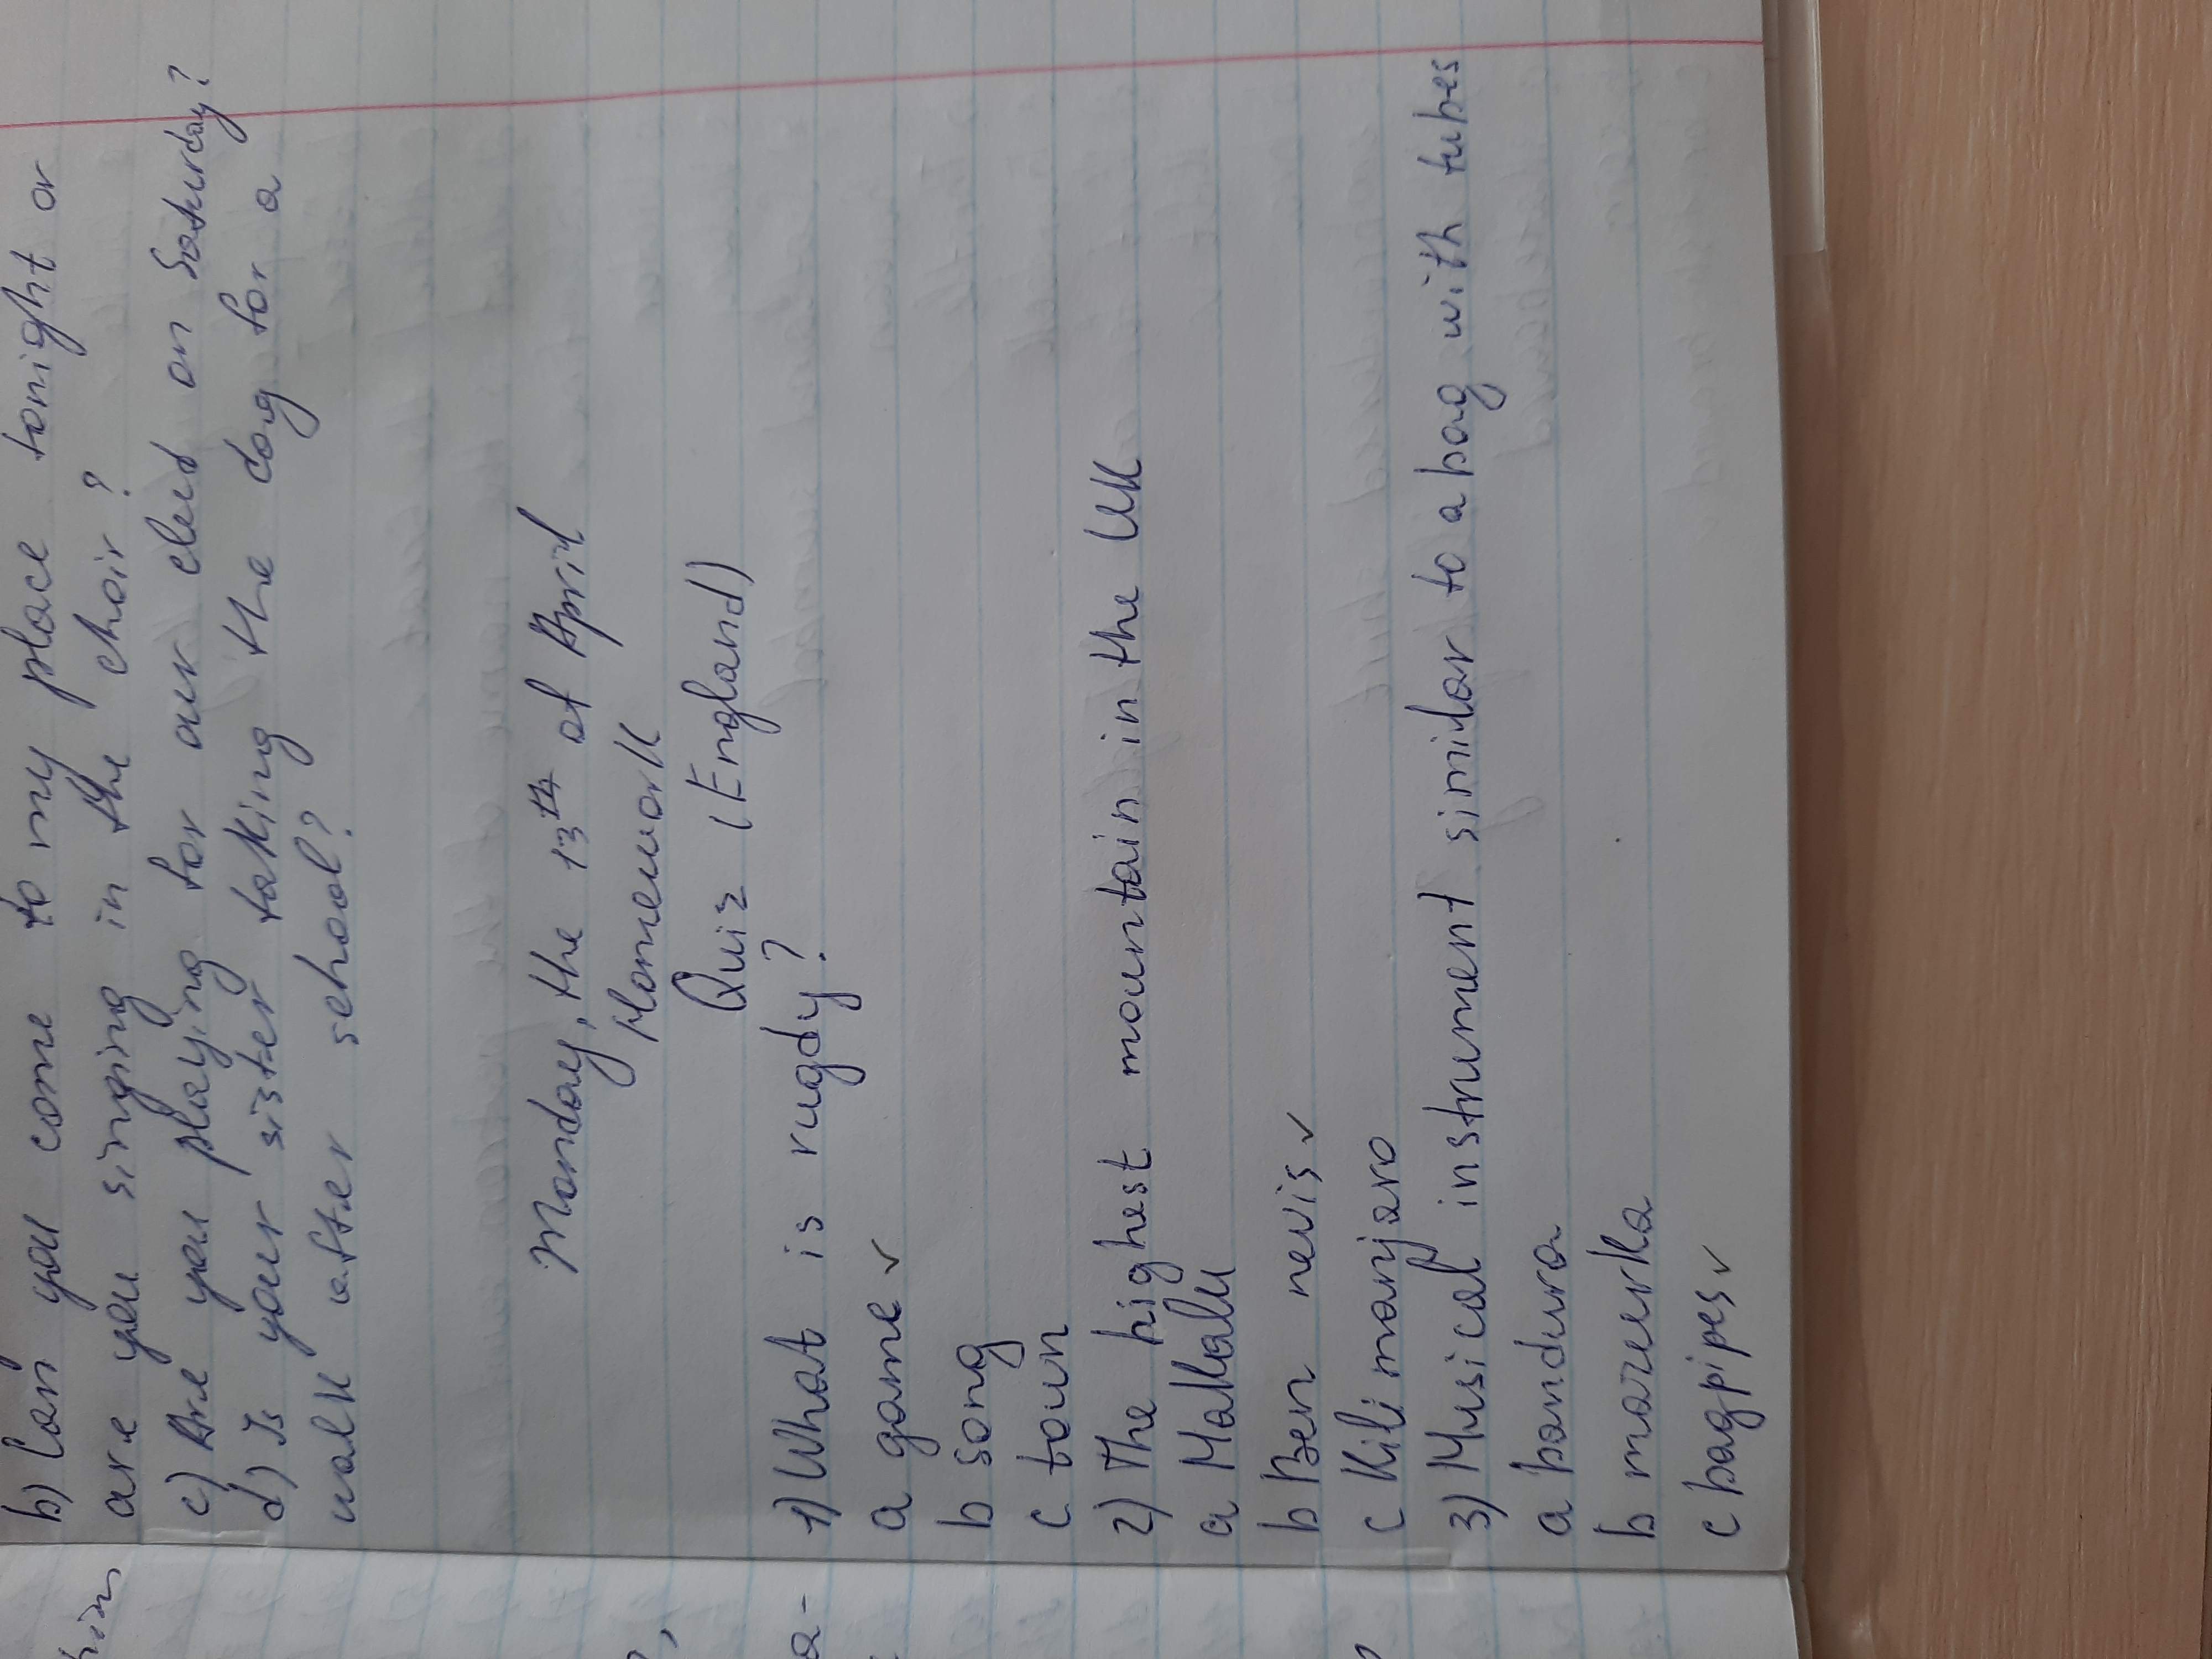 b) Can you come to my place tonight or
are you singing in the choir?
c) Are you playing for our club on Saturday?
d) Is your sister taking the dog for a
walk after school?
Monday, the 13th of April
Homework
Quiz (England)
1) What is rugdy?
a game ✓
b song
c town
2) The highest mountain in the UK
a Makalu
b Ben nevis ✓
c Kilimanjaro
3) Musical instrument similar to a bag with tubes
a bandura
b mazurka
c bagpipes ✓